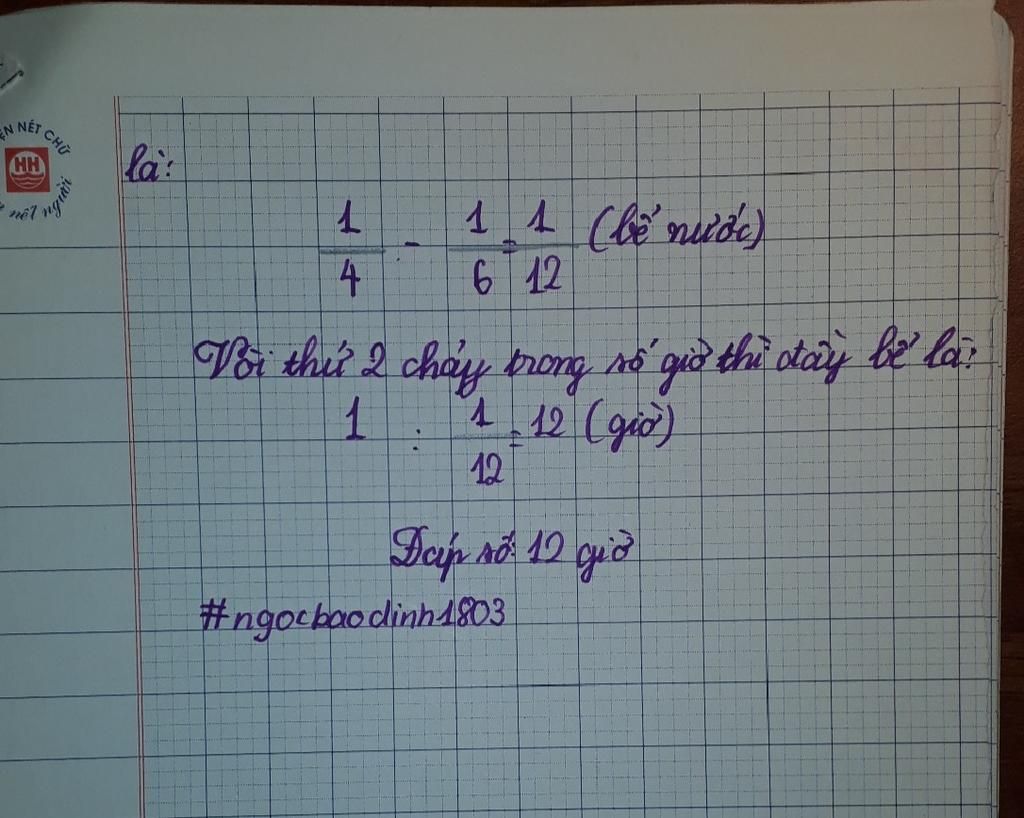 ỆN NÉT CHỮ
HH
nết người
là:
1/4 - 1/6 = 1/12 (bể nước)
Vòi thứ 2 chảy trong số giờ thì đầy bể là:
1 : 1/12 = 12 (giờ)
Đáp số: 12 giờ
#ngocbaodinh1803